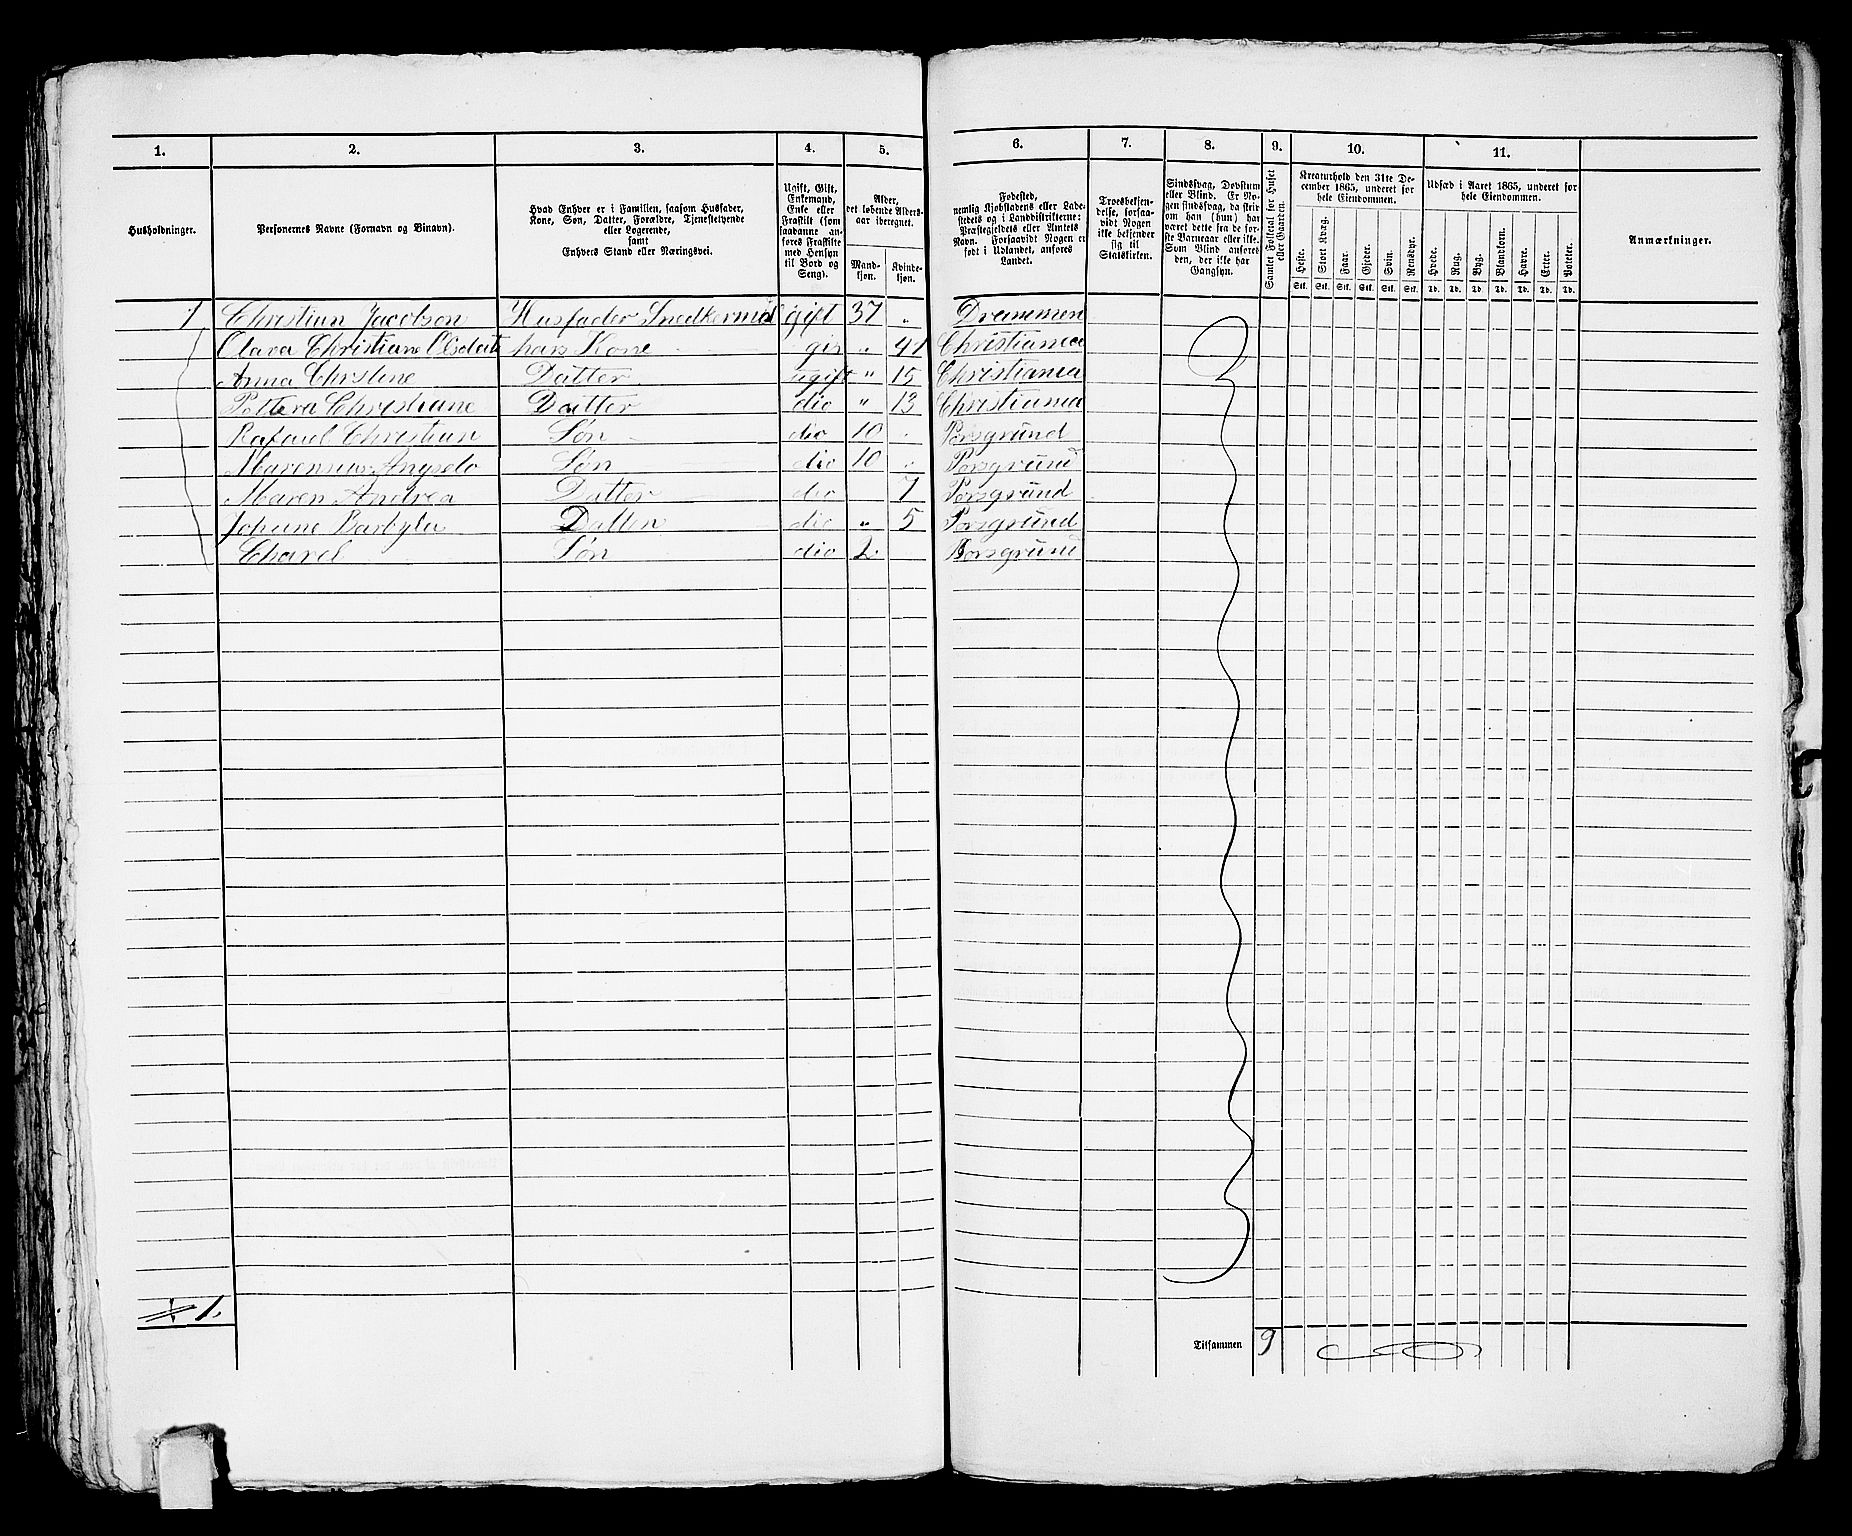 1. 2. 3. 4. 5. 6. 7. 8. 9. 10. 11.
Husholdninger.
Personernes Navne (Fornavn og Binavn).
Hvad Enhver er i Familien, saasom Husfader,
Kone, Søn, Datter, Forældre, Tjenestetyende
eller Logerende,
samt
Enhvers Stand eller Næringsvei.
Ugift, Gift,
Enkemand,
Enke eller
Fraskilt (som
saadanne an-
føres Fraskilte
med Hensyn
til Bord og
Seng).
Alder,
det løbende Alders-
aar iberegnet.
Mand-
kjøn.
Kvinde-
kjøn.
Fødested,
nemlig Kjøbstadens eller Lade-
stedets og i Landdistrikterne:
Præstegjeldets eller Amtets
Navn. Forsaavidt Nogen er
født i Udlandet, anføres
Landet.
Troesbekjen-
delse, forsaa-
vidt Nogen
ikke bekjender
sig til
Statskirken.
Sindssvag, Døvstum
eller Blind. Er No-
gen sindssvag, da skriv
om han (hun) har
været dette fra de før-
ste Barneaar eller ikke.
Som Blind anføres
den, der ikke har
Gangsyn.
Samlet Folketal for Huset
eller Gaarden.
Kreaturhold den 31te De-
cember 1865, underet for
hele Eiendommen.
Heste. Stort Kvæg. Faar. Gjeder. Svin. Rensdyr.
Stk. Stk. Stk. Stk. Stk. Stk.
Udsæd i Aaret 1865, underet for
hele Eiendommen.
Hvede. Rug. Byg. Blandkorn. Havre. Erter. Poteter.
Td. Td. Td. Td. Td. Td. Td.
Anmærkninger.
1 Christian Jacobson Husfader gift 37 " Drammen
Clara Christiane hans Kone gift " 41 Christiania
Anna Christine Datter ugift " 15 Christiania
Christiane Datter dio " 13 Christiania
Rafael Christian Søn dio 10 " Porsgrund
Søn dio 10 " Porsgrund
Maren Andrea Datter dio 7 Porsgrund
Datter dio " 5 Porsgrund
Søn dio 2 Porsgrund
1.
Tilsammen 9